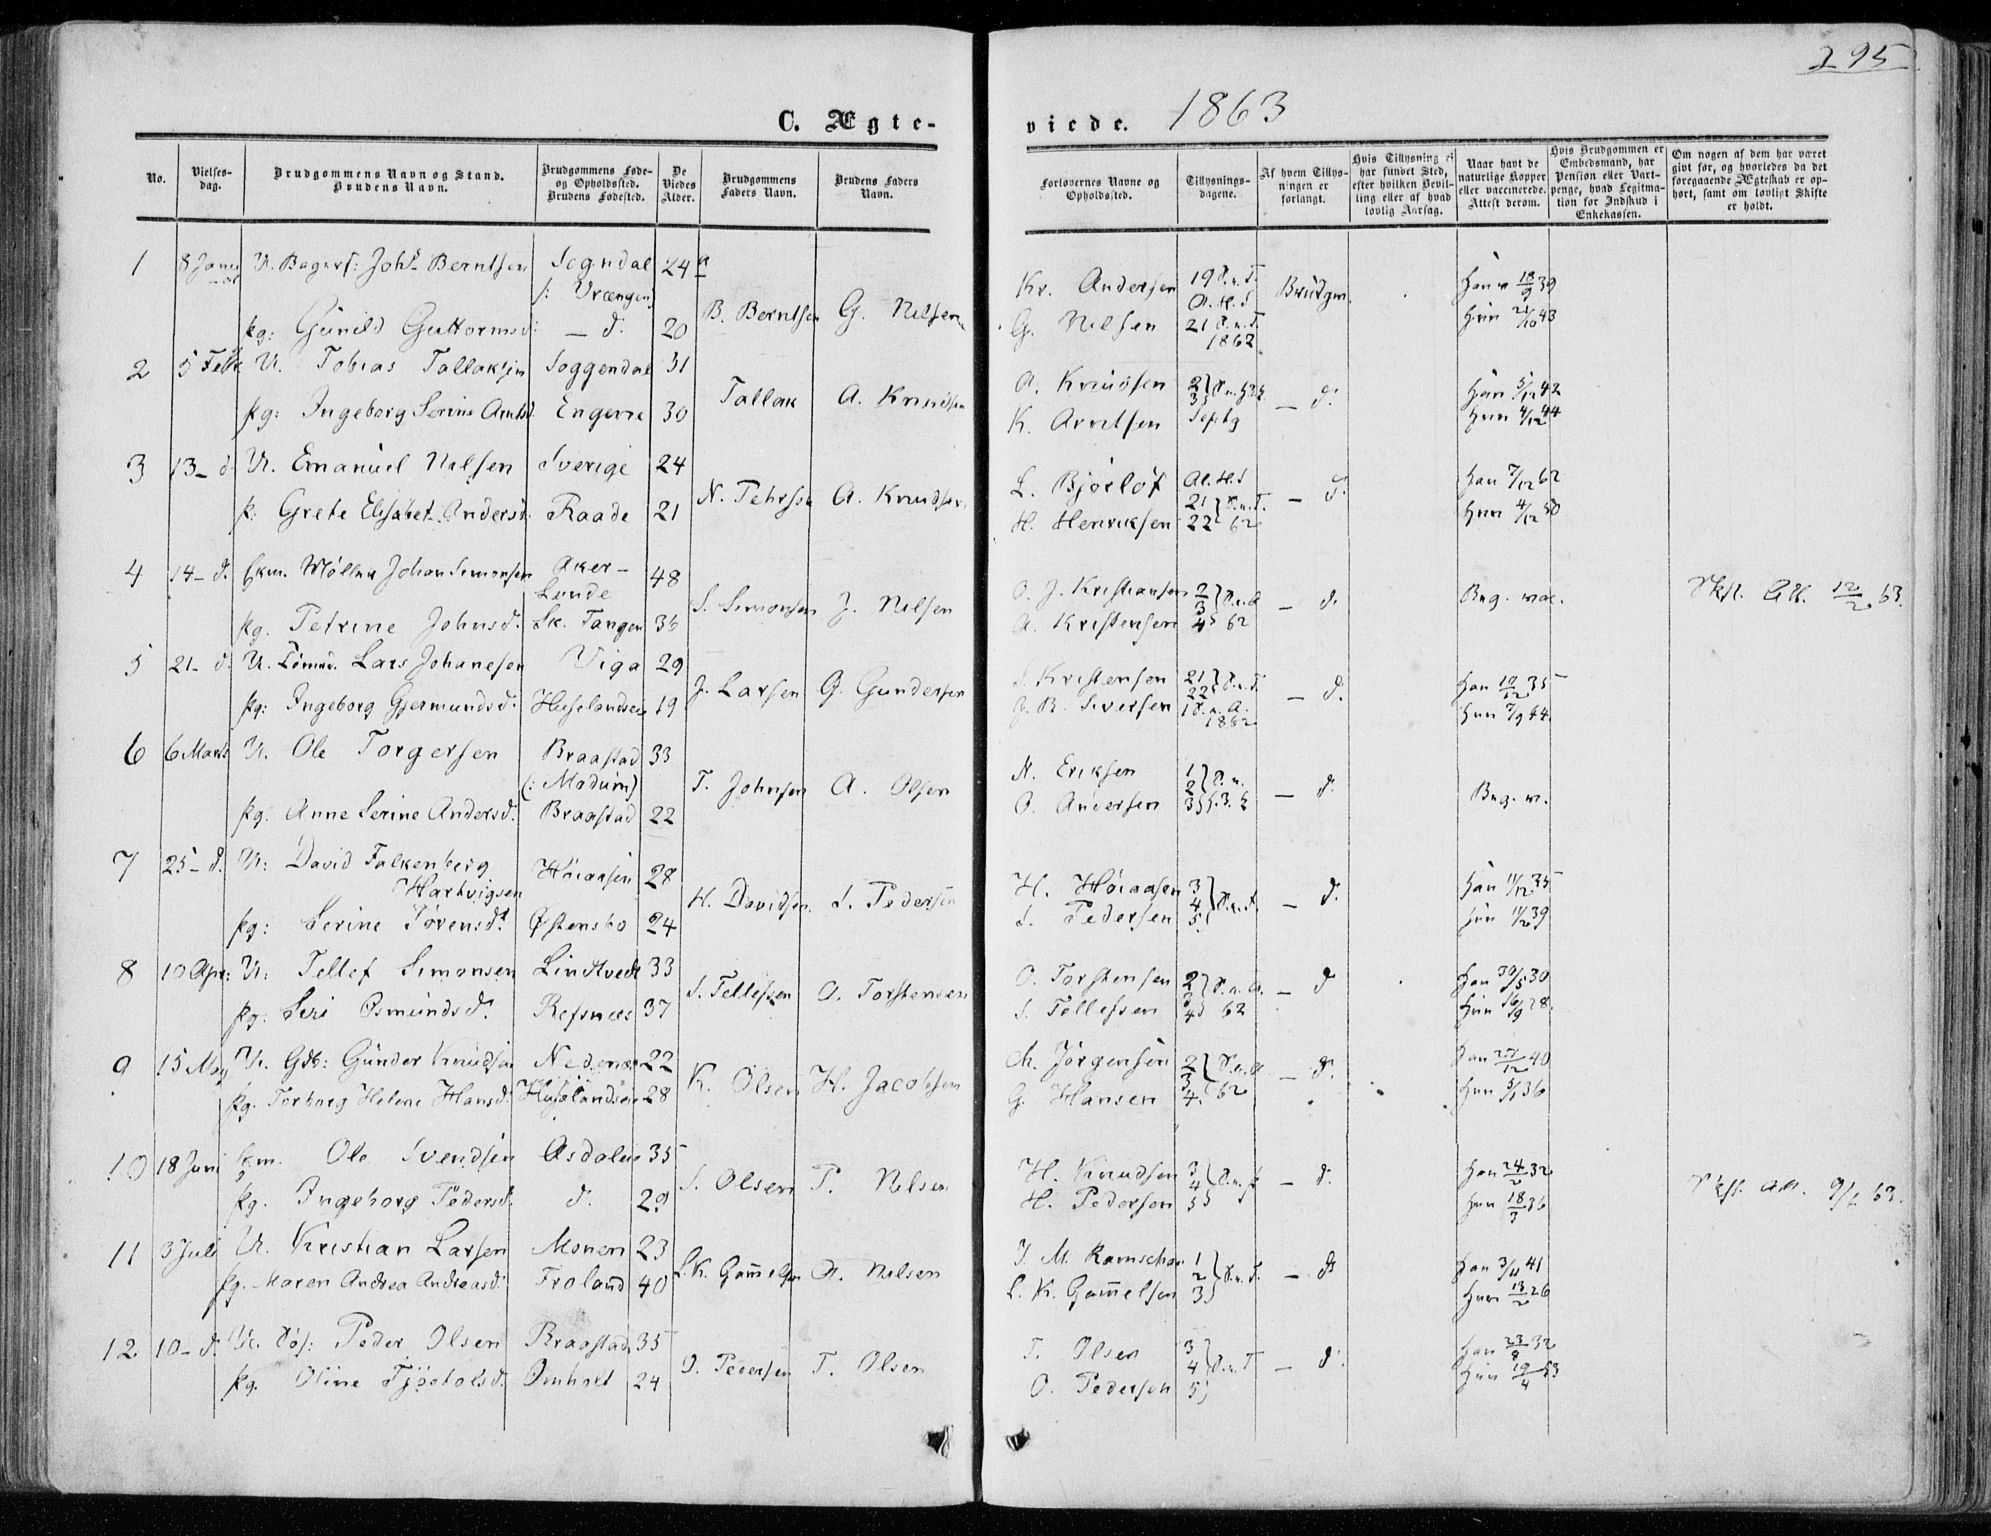 295
C. Ægte-
viede. 1863
No.
Vielses-
dag.
Brudgommens Navn og Stand.
Brudens Navn.
Brudgommens Føde-
og Opholdssted.
Brudens Fødested.
De
Viedes
Alder.
Brudgommens
Faders Navn.
Brudens Faders
Navn.
Forlovernes Navne og
Opholdssted.
Tillysnings-
dagene.
Af hvem Tillys-
ningen er
forlangt.
Hvis Tillysning ei
har fundet Sted,
efter hvilken Bevil-
ling eller af hvad
lovlig Aarsag.
Naar havt de
naturlige Kopper
eller vaccinerede.
Attest derom.
Hvis Brudgommen er
Embedsmand, har
Pension eller Vart-
penge, hvad Legitima-
tion for Indskud i
Enkekassen.
Om nogen af dem har været
givt før, og hvorledes da det
foregaaende Ægteskab er op-
hørt, samt om lovligt Skifte
er holdt.
1 U. Johs Berntsen Sogndal 24 Kr. Andersen 19 Brudgm. Han 18/9 39
(: Vrængen)
B. Berntsen G. Nilsen
pg: Gunild Guttormsd: — d. 20 G. Nilsen 21 Hun 21/10 43
1862
2 5 Feb U. Tobias Tallaksen Soggendal 31 A. Knudsen 2 Han 5/12 42
Tallak A. Knudsen — d.
pg: Ingeborg Serine Arntsd. Engene 30 K. Arntsen Septg Hun 4/12 44
3 13 – d. U. Emanuel Nilsen Sverige 24 L. Bjørlof Al. H. Han 7/12 62
N. Pehrson A. Knudsen 21 — d.
p: Grete Elisabet Andersd. Raade 21 H. Henriksen 22 62 Hun 4/12 50
4 14 – d. Ekm. Møller Johan Simonsen Aker – 48 O. J. Kristiansen 2
Lunde
S. Simonsen J. Nilsen 3 — d. Bug. vac. Skft. Att. 12/2 63.
pg. Petrine Johnsd. Sk. Tangen 36 A. Kristensen 4 62
5 21 – d. U. Tømmd. Lars Johanesen Viga 29 S. Kristensen 21 Han 10/12 35
J. Larsen G. Gundersen 22 — d.
pg: Ingeborg Gjermundsd. Huselandseie 19 Siversen 1 Hun 7/9 44
1862
6 6 Marts U. Ole Torgersen Braastad 33 N. Eriksen 1
(: Modum) T. Johnsen A. Olsen 2 — d. Bug. v.
pg. Anne Serine Andersd. Braastad 22 O. Andersen 3
7 25 – d. U: David Falkenberg Høiaasen 28 H. Høiaasen 3 Han 11/12 35
Hartvigsen H. Davidsen S. Pedersen 4 — d.
pg: Serine Sørensd. Østensbo 24 S. Pedersen 5 Hun 11/2 39
8 10 Apr: U: Tellef Simonsen Lindtvedt 33 O. Torstensen 2 Han 30/5 30
S. Tellefsen O. Torstensen 3 — d
pg: Siri Osmundsd. Refsnæs 37 S. Tellefsen 4 62 Hun 16/9 28.
9 15 May U. Gdb: Gunder Knudsen Nedenæs 22 M. Jørgensen 2 Han 27/12 40
K. Olsen H. Jacobsen 3 — d.
pg. Torborg Helene Hansd. Huselandseie 28 G. Hansen 4. 62 Hun 5/1 36
10 18 Juni Ekm. Ole Svendsen Asdalen 35 H. Knudsen 3 Han 24/2 32
S. Olsen P. Nilsen 4 — d. Skft. Att. 63.
pg. Ingeborg Pedersd. d. 29 H. Pedersen 5 Hun 18/3 36
11 3 Juli U. Kristian Larsen Monen 23 J. M. Ramschar 1 Han 3/11 41
L. K. Gam̄elsen A. Nilsen 2 — d.
pg. Maren Andrea Andreasd. Froland 40 L. K. Gam̄elsen 3 Hun 13/2 26
12. 10 – d. U. Søs: Peder Olsen Braastad 35 T. Olsen 3 Han 23/8 32
O. Pedersen T. Olsen 4 — d.
pg. Oline Tjøstolsd. Omholt 24 O. Pedersen 5 Hun 19/4 53